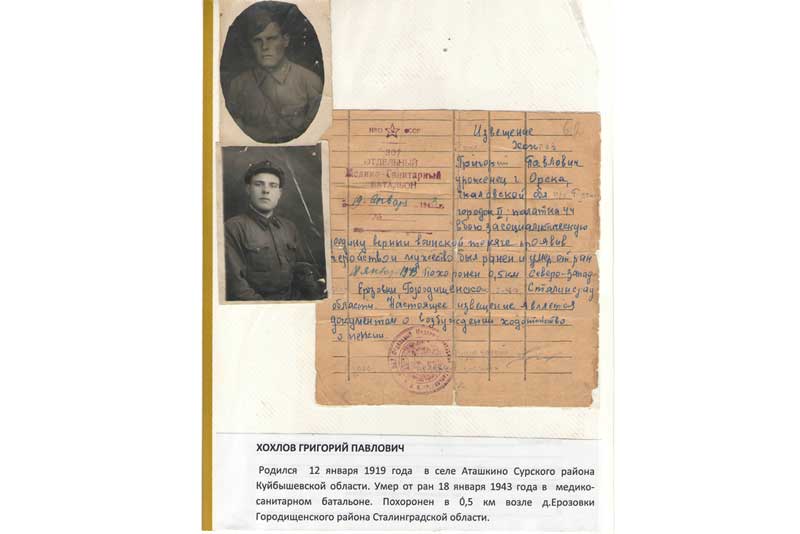 НКО СССР
Извещение
ОТДЕЛЬНЫЙ
Медико-Санитарный
БАТАЛЬОН
Григорий Павлович
уроженец г. Орска,
Чкаловской обл
19 Января
городок II; палатка 44
в бою за социалистическую
родину верный воинской присяге проявив
геройство и мужество был ранен и умер от ран
похоронен 0,5 км Северо-Запад
Ерзовки, Городищенско Сталинград
области. Настоящее извещение является
документом о возбуждении ходатайства
о пенсии.
ХОХЛОВ ГРИГОРИЙ ПАВЛОВИЧ
Родился 12 января 1919 года в селе Аташкино Сурского района
Куйбышевской области. Умер от ран 18 января 1943 года в медико-
санитарном батальоне. Похоронен в 0,5 км возле д.Ерозовки
Городищенского района Сталинградской области.